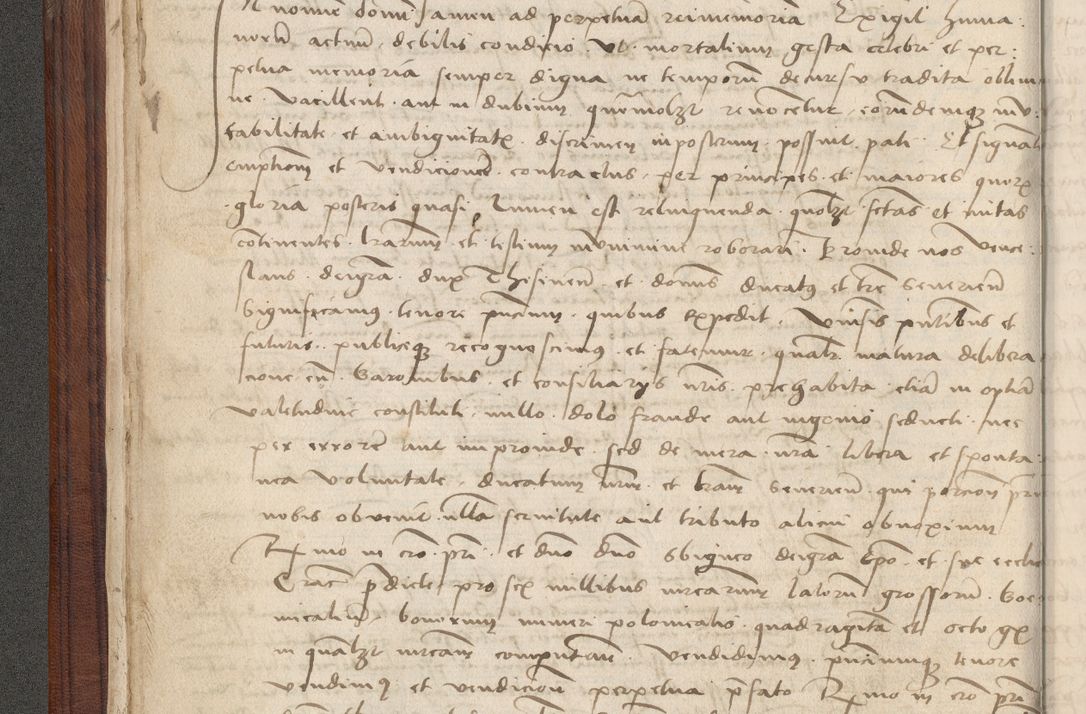 In nomine domini Jamen ad perpetuam reimemoria Exigit huma
norum actuum debilis condicio ut mortalium gesta celebri et per
petua memoria semper digna ne temporum decursu tradita oblivi
ne vacillent aut in dubium quomolzt revocetur eorundemqz mu
tabilitate et ambiguitatis discrimen inposterum possint pati Et signant
emptionum et vendicionum contractus per principes et maiores quorum
gloria posteris quasi lumen est relinquenda quolzt fctas et initas
continentes lrarum et testium muniminie roborari Proinde nos Vence
slaus deigra dux Thesinens et dominus ducatus et tre Severiens
Significamus tenore pntium quibus expedit Vnivsis pntibus et
futuris publiceqz recognoscimus et fatemur qualr matura delibera
cione cum baronibus et consiliarijs nris prehabita etiam in optima
valetudine constituti nullo dolo fraude aut ingenio seducti nec
per errorem aut improvide sed de mera nra libera et sponta
nea voluntate ducatum nrum et tram Severiens qui porcioni pri
nobis obvenit nulla servitute aut tributo alicui obnoxium
Rmo in cro pri et dno dno Sbigneo deigra Epo et sue ecclie
Crac predicte pro sex millibus mrcarum latorum grossorum Boe
micalium bonorum numeri polonicalis quadraginta et octo gr
in qualzt mrcam computan vendidimus pntiumqz tenore
vendimus et vendicionem perpetua prefato Rmo in cro pri